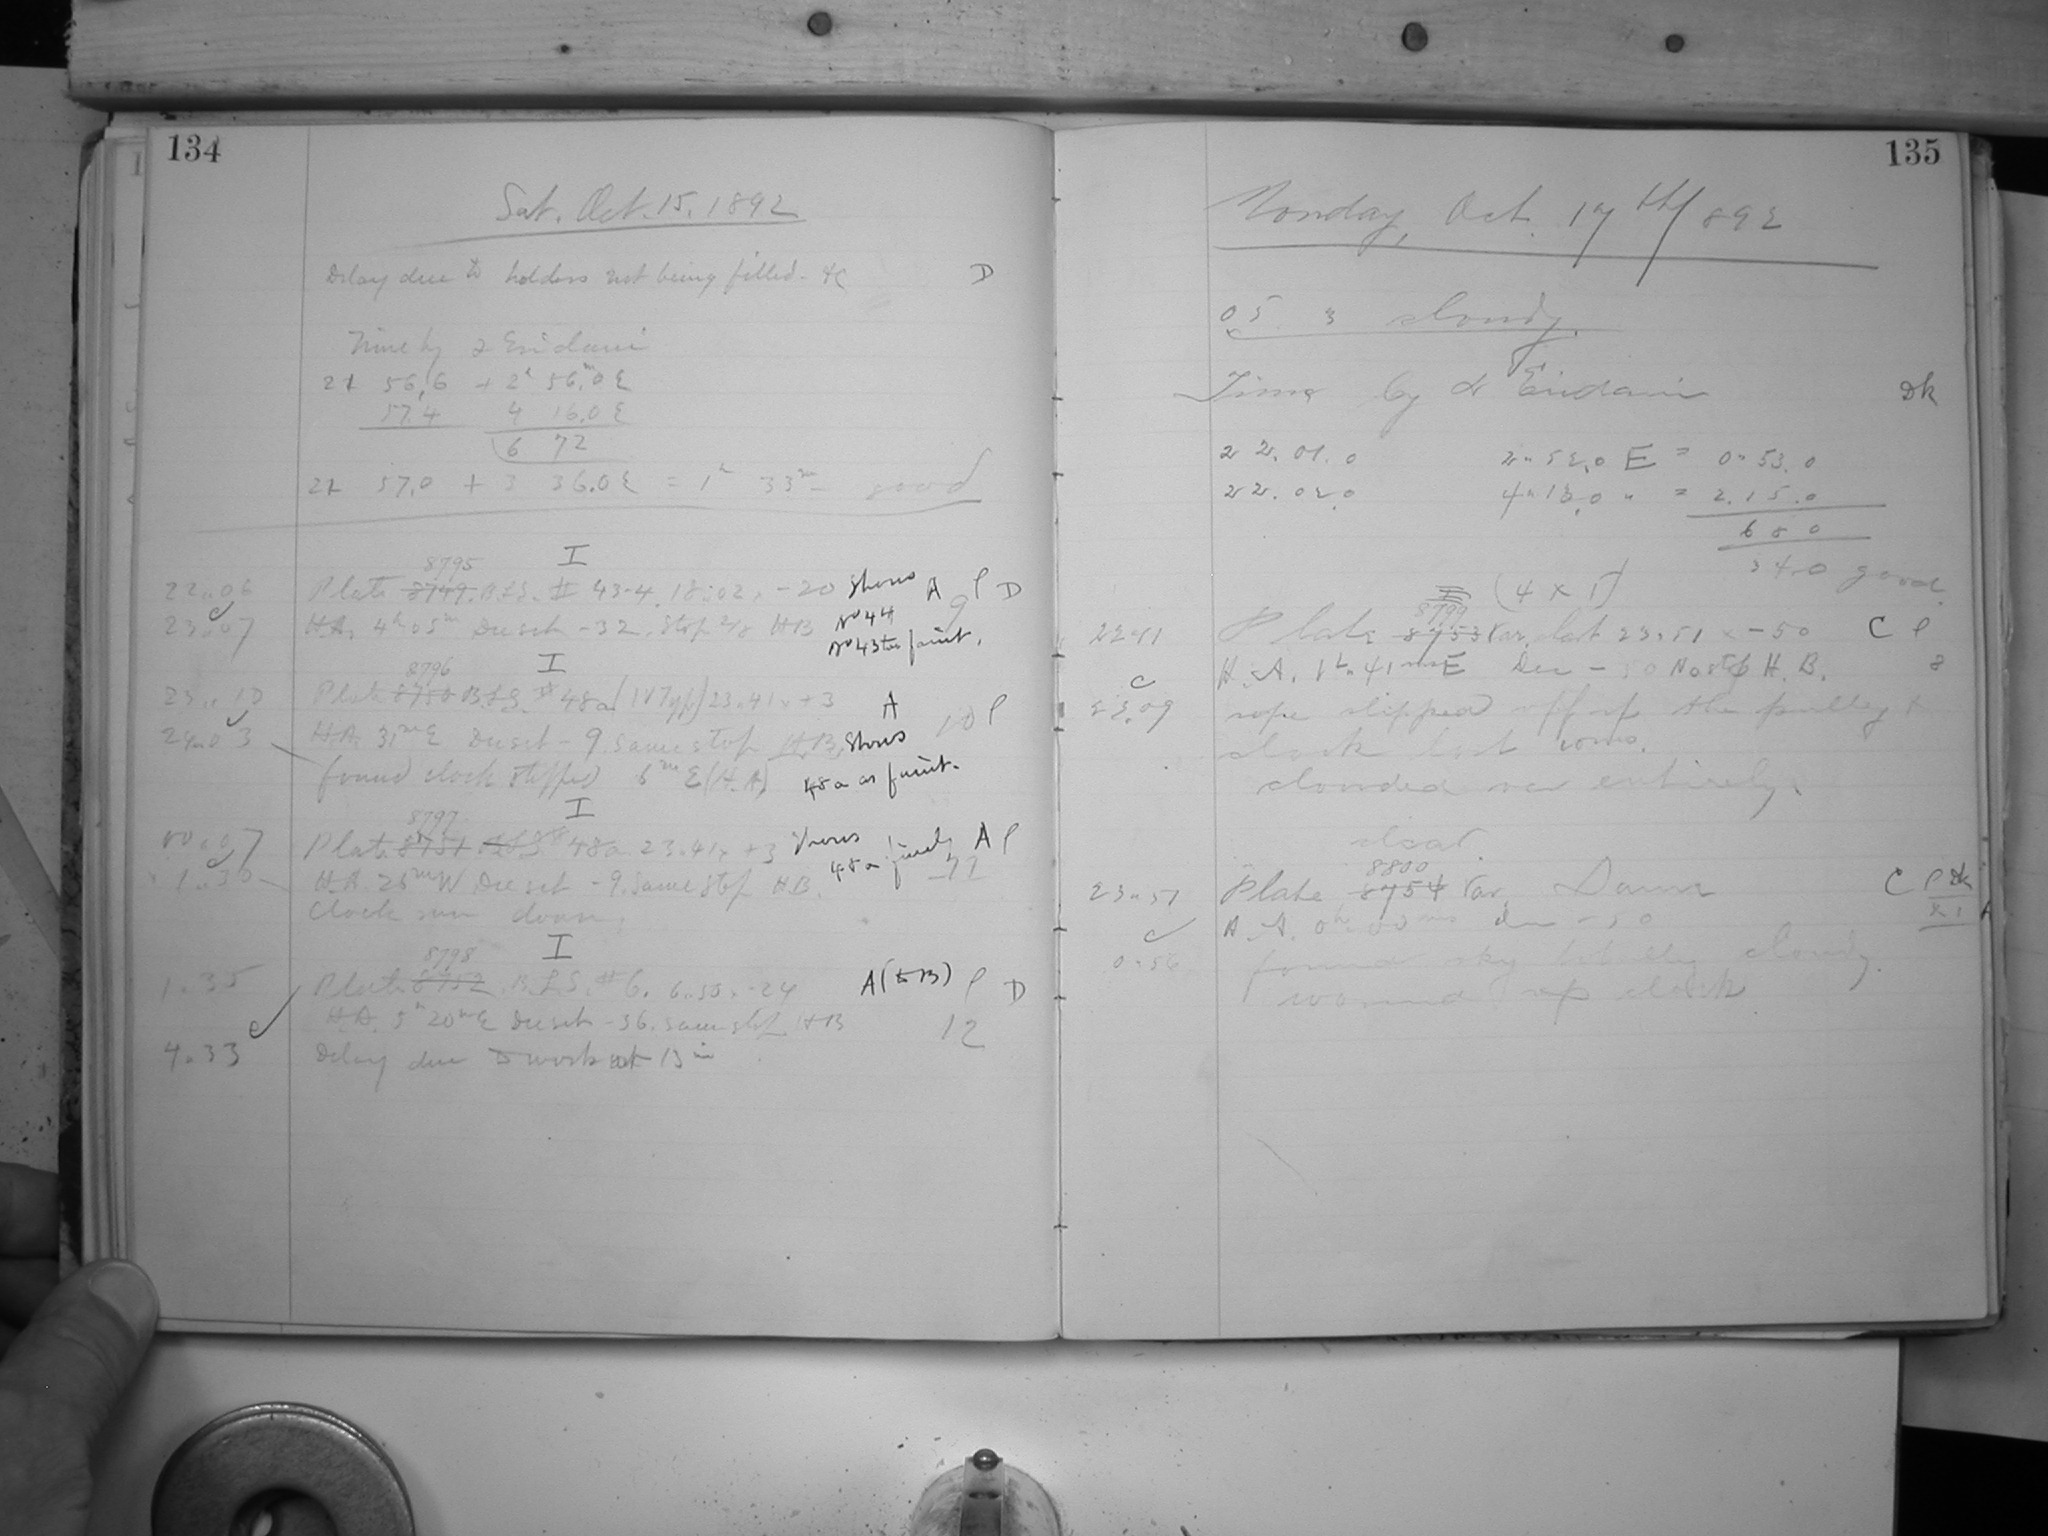 134
Sat. Oct. 15, 1892
Delay due to holders not being filled - &c D
Time by α Eridani
21 56.6 + 2h 56.m0 E
57.4 4 16.0 E
6 72
21 57.0 + 3 36.0 E = 1h 33m good
I
8795
22..06 Plate 8749. B.L.S. # 43-4. 18:02, -20 Shows A P D
23..07 H.A. 4h 05m Dec set -32. Stop H B No 44 9
No 43 too faint.
8796 I
23..10 Plate 8750 B.L.S. # 48a (IV Typ) 23.41, +3 A
24..03 H.A. 31m E Dec set - 9. same stop H.B. Shows 10 P
found clock stopped 6m E (H.A) 48a as faint.
8797 I
00..07 Plate 8751 B.L.S # 48a 23.41, +3 Shows A P
1..30 H.A. 25m W Dec set - 9. same stop H.B. 48a finely 11
Clock run down.
8798 I
1.35 Plate 8752 B.L.S. # 6. 6.50, -24 A (to B) P D
H.A. 5h 20m E Dec set -36. same stop H B 12
4.33 Delay due to work at 13 in
135
Monday, Oct. 17th/892
05 3 cloudy.
Time by α Eridani Dk
22.01.0 2..52.0 E = 0..53.0
22.02.0 4..13.0 " = 2.15.0
680
34.0 good
(4 x 1)
8799
22..11 Plate 8753 Var. 23.51 x -50 C P
H.A. 1h..41ms E Dec - 50 No stop H.B. 8
23.09 rope slipped off of the pulley &
clock lost
clouded over entirely.
clear.
8800
23..51 Plate 8754 Var. Same C P Dk
H.A. 0h 00ms dec -50
0..56 found sky totally cloudy.
wound up clock